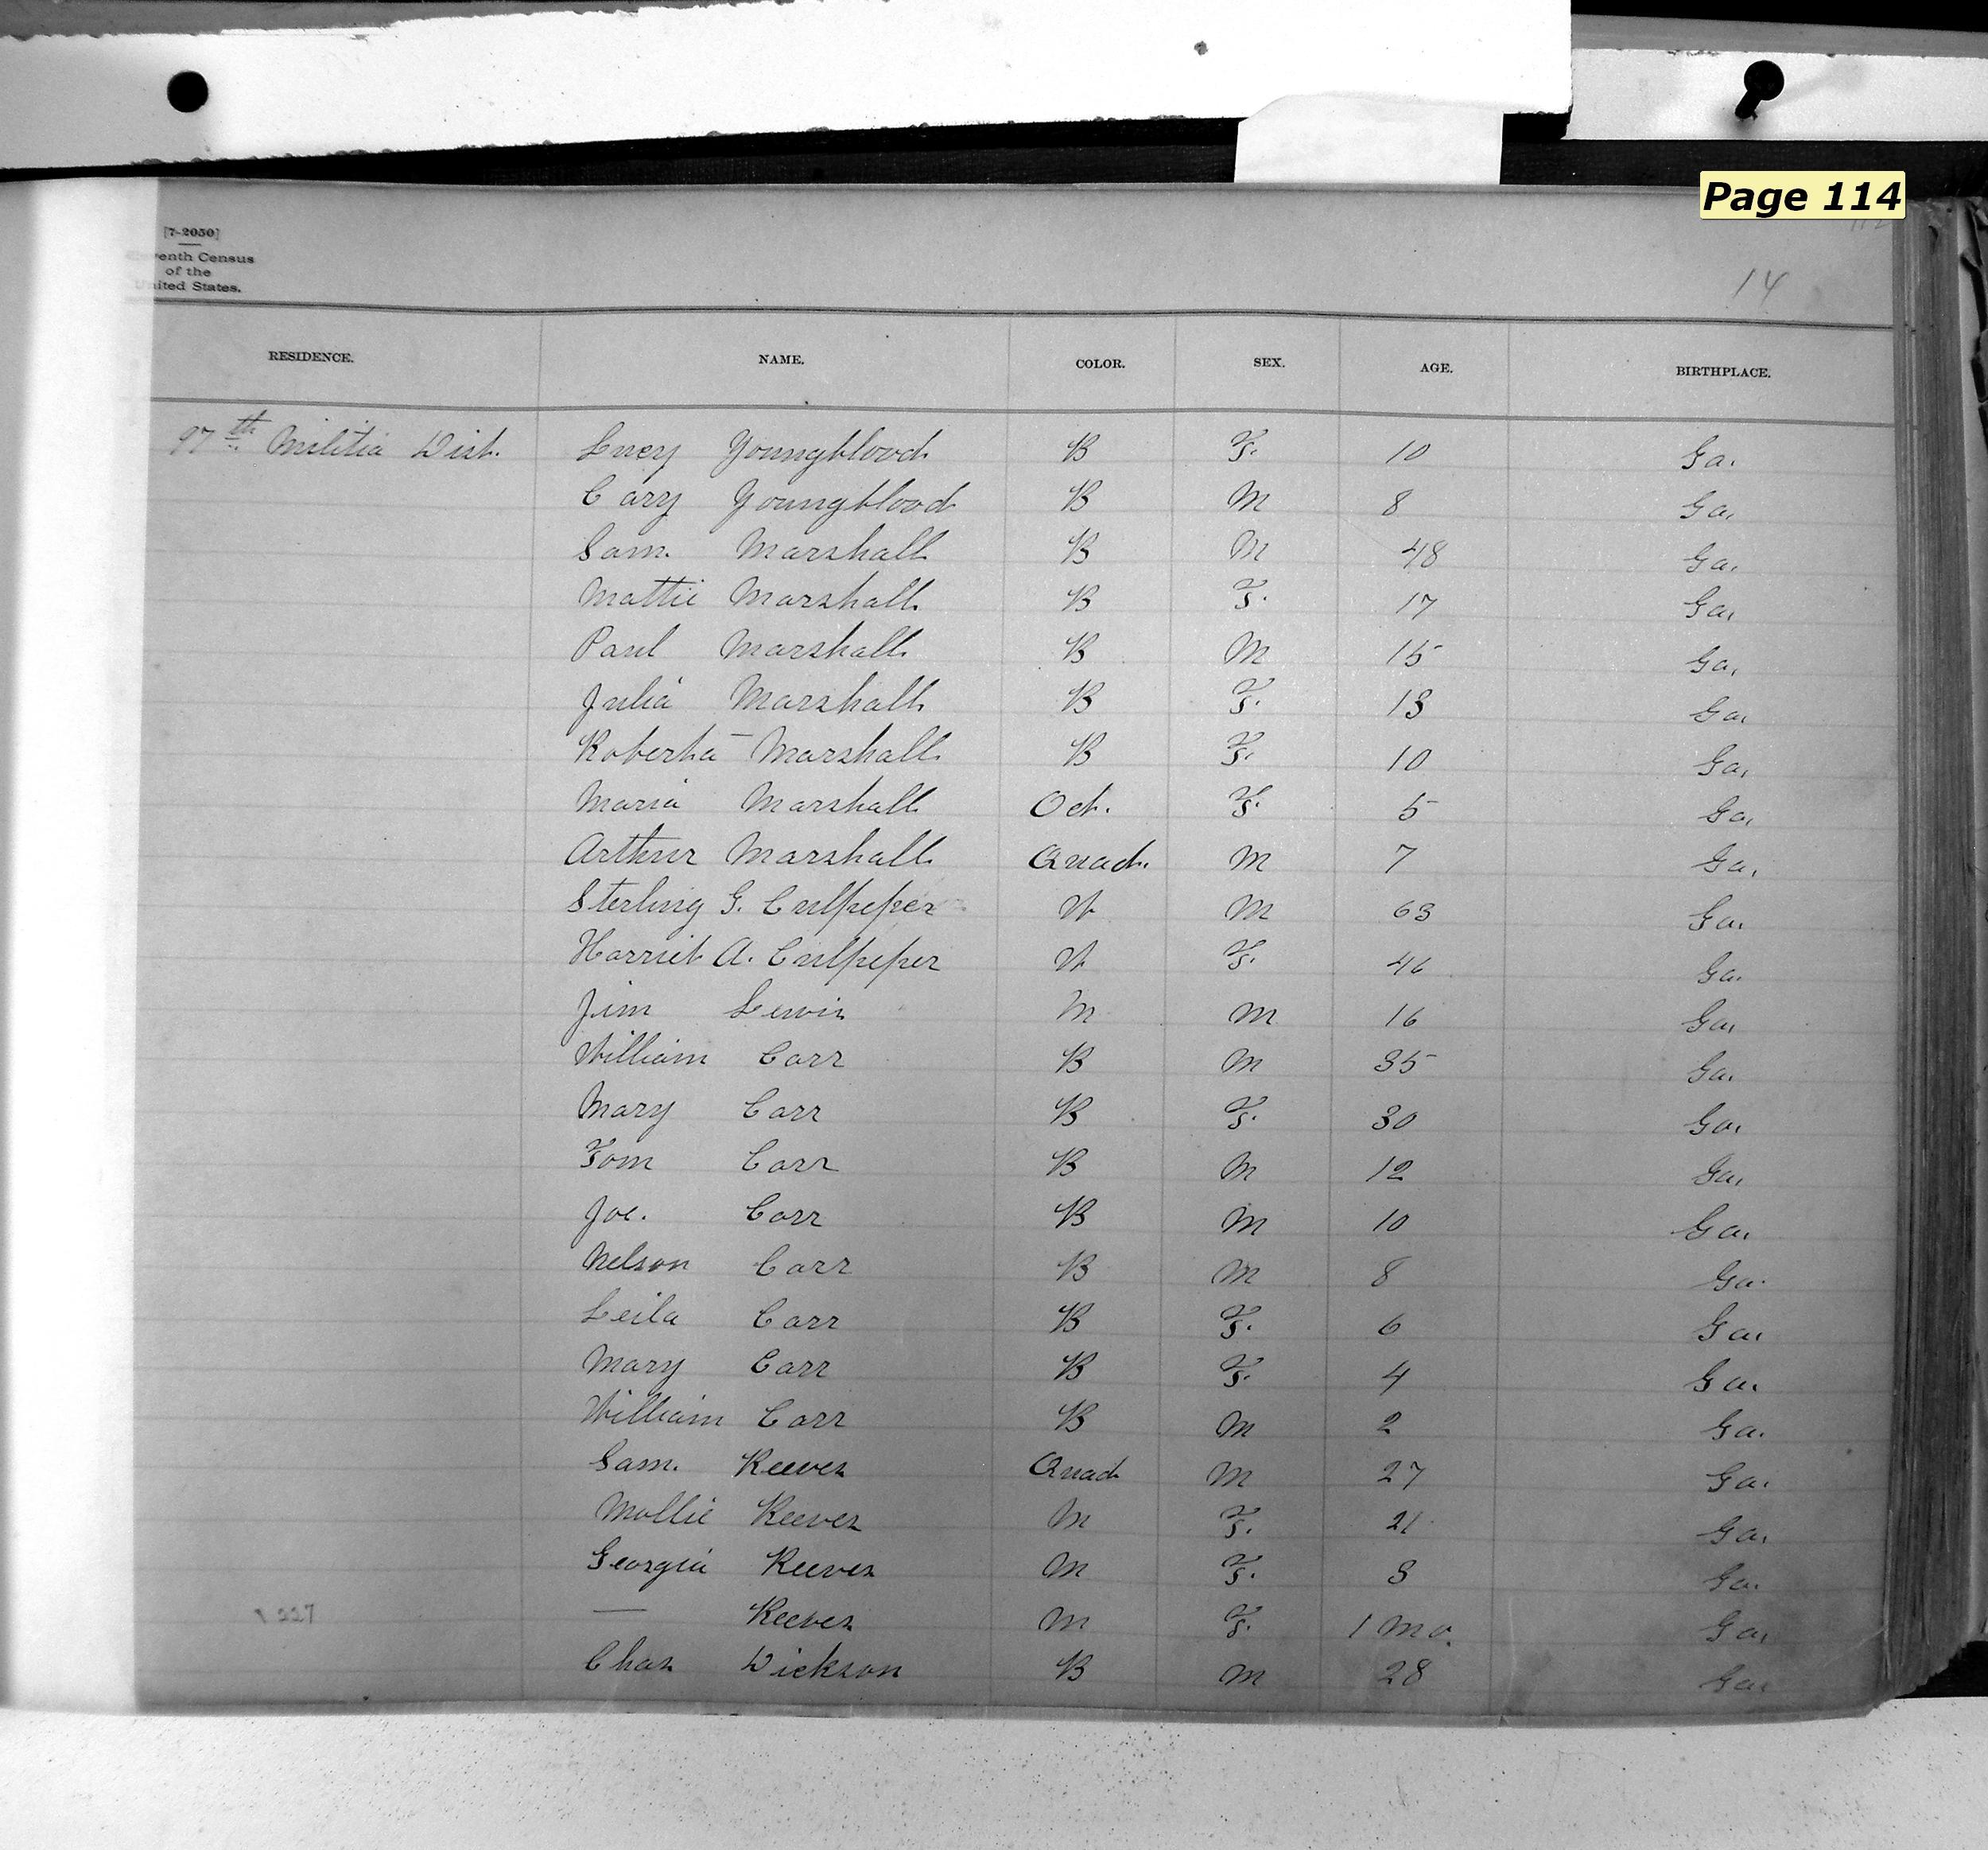 Page 114
[7-2050]
venth Census
of the
United States.
14
RESIDENCE. NAME. COLOR. SEX. AGE. BIRTHPLACE.
97th Militia Dist. Lucy Youngblood B F. 10 Ga.
Cary Youngblood B M 8 Ga.
Sam. Marshall B M 48 Ga.
Mattie Marshall B F. 17 Ga.
Paul Marshall B M 15 Ga.
Julia Marshall B F. 13 Ga.
Roberta Marshall B F. 10 Ga.
Maria Marshall Oct. F. 5 Ga.
Arthur Marshall Quad. M 7 Ga.
Sterling G. Culpeper W M 63 Ga.
Harriet A. Culpeper W F. 46 Ga.
Jim Lewis M M 16 Ga.
William Carr B M 35 Ga.
Mary Carr B F. 30 Ga.
Tom Carr B M 12 Ga.
Joe. Carr B M 10 Ga.
Nelson Carr B M 8 Ga.
Leila Carr B F. 6 Ga.
Mary Carr B F. 4 Ga.
William Carr B M 2 Ga.
Sam. Reeves Quad M 27 Ga.
Mollie Reeves M F. 21 Ga.
Georgia Reeves M F. 3 Ga.
227 — Reeves M F. 1 mo. Ga.
Chas Dickson B M 28 Ga.